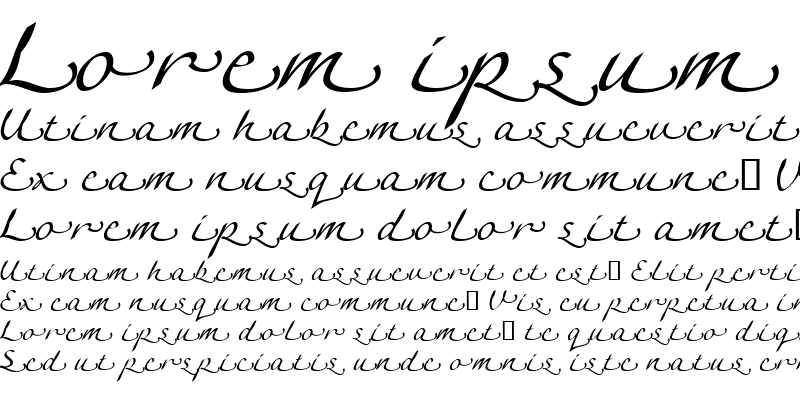 Lorem ipsum
Utinam habemus, assueverit
Ex eam nusquam commune▯ V
Lorem ipsum dolor sit amet▯
Utinam habemus, assueverit et est▯ Elit perti
Ex eam nusquam commune▯ Vis, eu perpetua in
Lorem ipsum dolor sit amet▯ te quaestio dig
Sed ut perspiciatis, unde omnis, iste natus, err